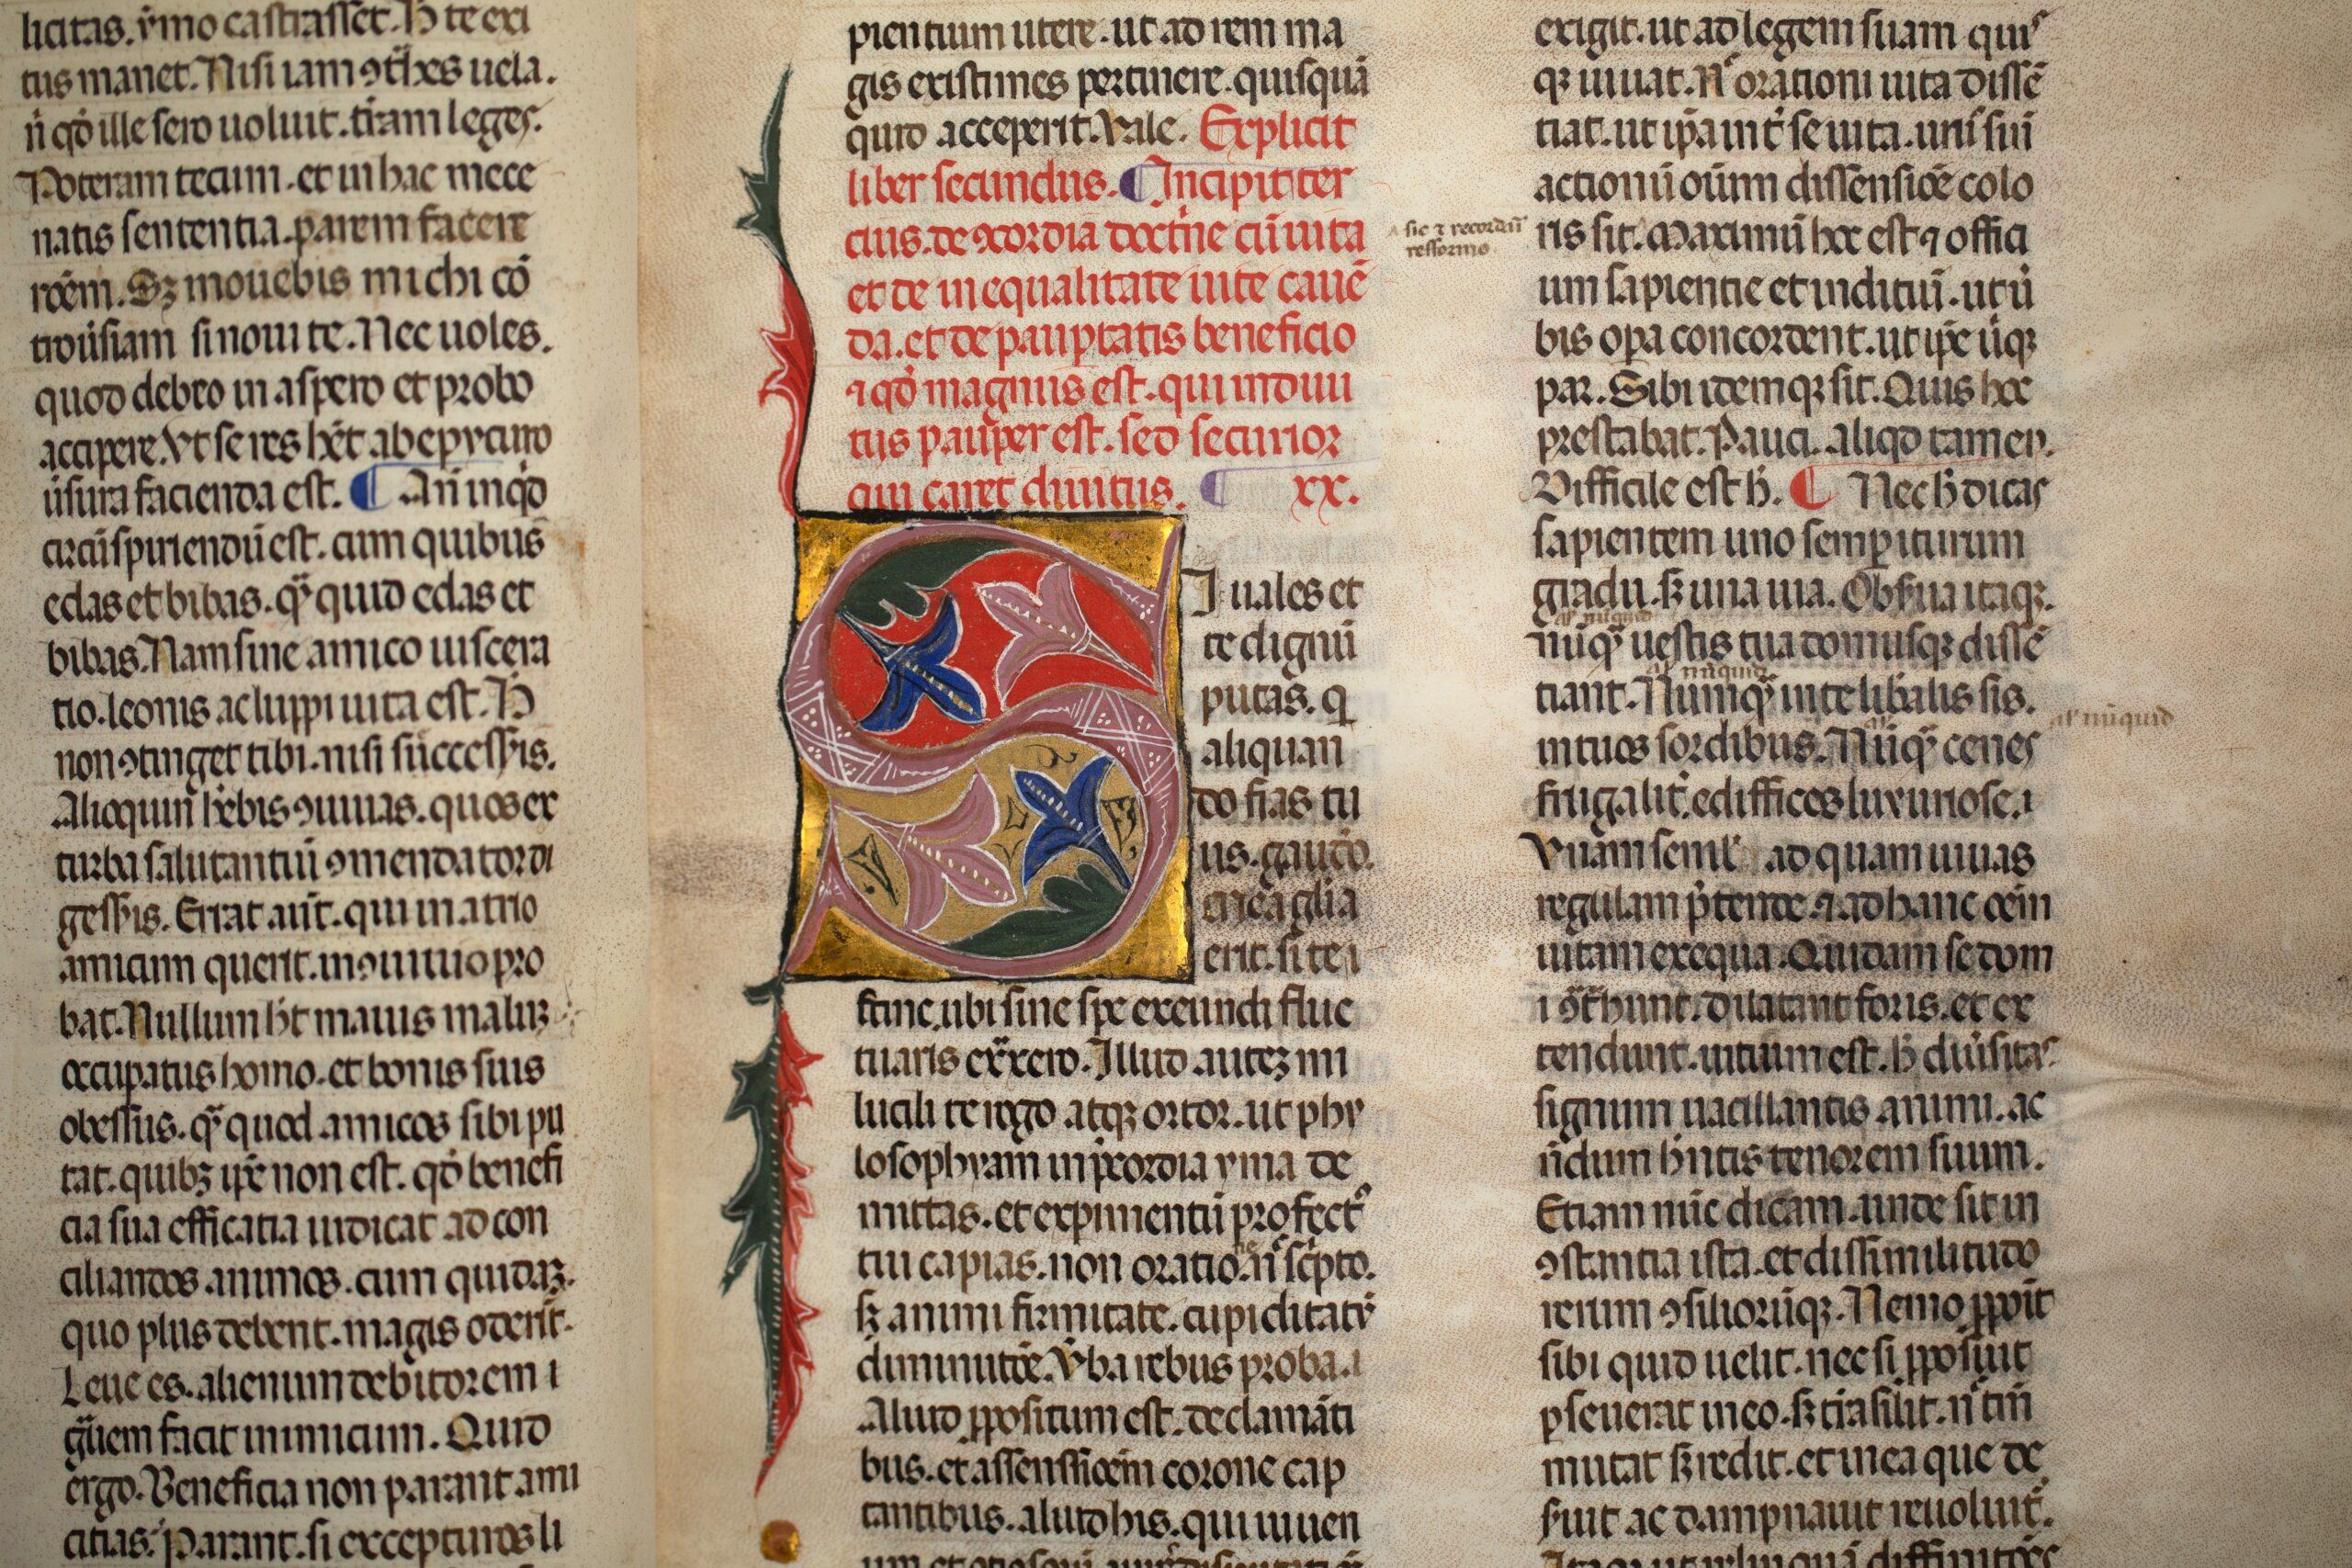 licitas.ymo castrasset.h̄ te exi
tus manet.Nisi iam ꝯt̃hes uela.
ñ qd̓ ille sero uoluit.t̃ram leges.
Poteram tecum.et in hac mece
natis sententia.parem facere
rõem.Sꝫ mouebis michi cõ
trou̇siam si noui te.Nec uoles.
quod debeo in aspero et probo
accipere.Vt se res hẽt ab epycuro
u̇sura facienda est. ¶ An̄ inqd̓
circũspiciendũ est.cum quibus
edas et bibas.q̃ quid edas et
bibas.Nam sine amico uiscera
tio.leonis ac luppi uita est.h̄
non ꝯtinget tibi.nisi successeris.
Alioquin hẽbis ꝯuiuas.quos ex
turba salutantuũ ꝯmendator di
gesseris.Errat aũt.qui in atrio
amicum querit.in ꝯuiuio pro
bat.Nullum ht̄ maius maluꝫ
occupatus homo.et bonis suis
obessus.q̃ quod amicos sibi pu
tat.quibꝫ ip̃e non est.qd̓ benefi
cia sua efficatia iudicat ad con
ciliandos animos.cum quidaꝫ.
quo plus debent.magis oderĩt.
Leue es.alienum debitorem ı
g̃uem facit inimicum.Quid
ergo.Beneficia non parant ami
citias.Parant.si excepturos li
pientium utere.ut ad rem ma
gis existimes pertinere.quisquã
quid acceperit.Vale. Explicit
liber secundus. ¶ Incipit ter
cius.de ꝯcordia doct'ne cũ uita
et de inequalitate uite cauẽ
da.et de paup̱tatis beneficio
⁊ qd̓ magnus est.qui in diui
tiis paup̃er est.sed securior
qui caret diuitiis. ¶ xx.
SI uales et
te dignũ
putas.q
aliquan
do fias tu
us.gaudo.
mea glia
erit.si te ı
stinc.ubi sine spe exeundi fluc
tuaris ex̃xero.Illud auteꝫ mi
lucili te rogo atqꝫ ortor.ut phy
losophyam in p̃cordia yma de
mittas.et expimentũ profect᷒
tui capias.non oratione.ñ sc̓pto.
sꝫ animi firmitate.cupiditatũ
diminutõe.V̓ba rebus proba.ı
Aliud p̱positum est.declamãti
bus.et assenssiõem corone cap
tantibus.aliud his.qui iuuen
exigit.ut ad legem suam quis
qꝫ uiuat.N̓ orationi uita dissẽ
tiat.ut ip̃a int̓ se uita.uni᷒ sui
actionũ oĩum dissensiõe colo
ris sit.Maximũ hoc est ⁊ offici
um sapientie et indituũ.ut u̇
bis opa concordent.ut ip̃e u̇qꝫ
par.Sibi idemqꝫ sit.Quis hoc
prestabat.Pauci.aliqd tamen.
Difficile est h̄. ¶ Nec h̄ dicas
sapientem uno semp iturum
gradu.sꝫ una uia.Obs̓ua itaqꝫ.
nũq̃ uestis tua domusqꝫ dissẽ
tiant.Numq̃ in te lib̓alis sis.
in tuos sordibus.Nũq̃ cenes
frugalit̓.edifficos luxuriose.ı
Vnam semł ad quam uiuas
regulam p̓tende.⁊ ad hanc oẽm
uitam exequa.Quidam se dom
i ꝯt̃hunt.dilatant foris.et ex
tendunt.uitium est.h̄ diũsitas
signum uacillantis animi.ac
ñdum hñtis tenorem suum.
Etiam nũc dicam.unde sit in
ꝯstantia ista.et dissimilitudo
rerum ꝯsiliorũqꝫ.Nemo p̱poĩt
sibi quid uelit.nec si p̱posuit
pseuerat in eo.sꝫ t̃nsilit.ñ tm̃
mutat sꝫ redit.et in ea que de
suit ac dampnauit reuoluit̓.